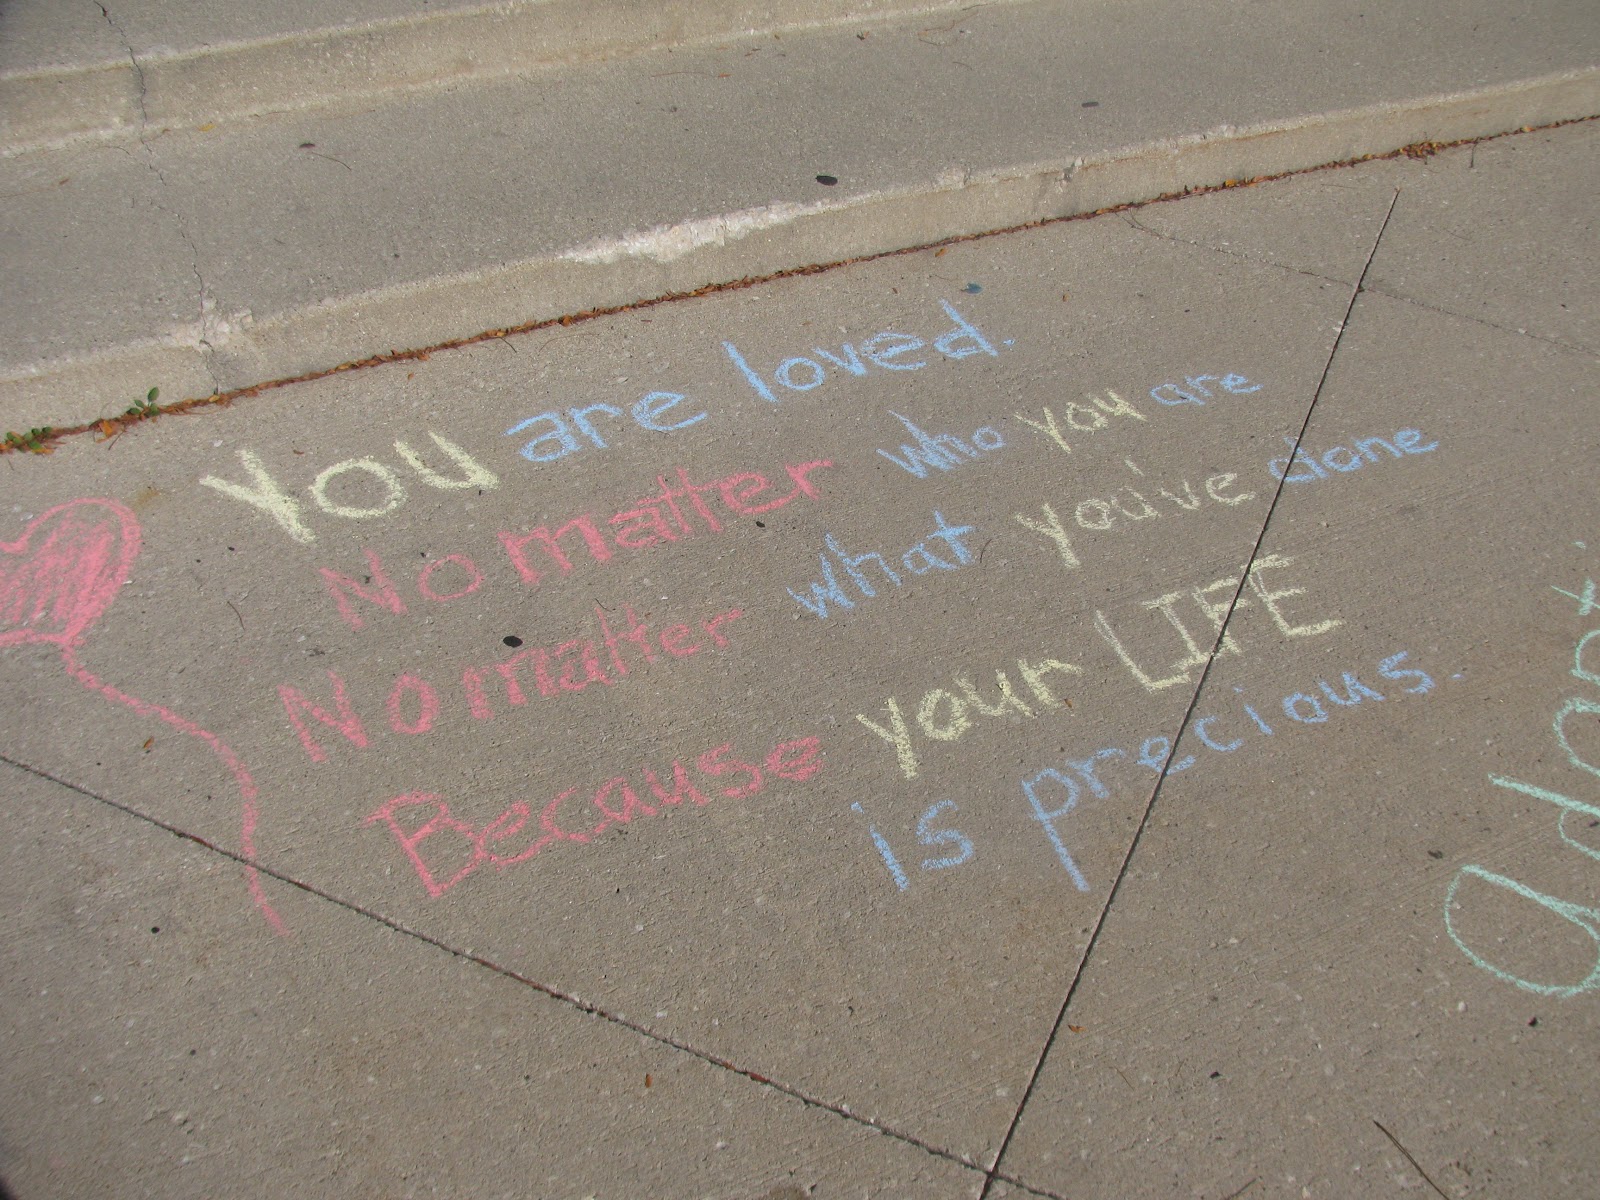 You are loved.
No matter who you are
No matter what you've done
Because your LIFE
is precious.
adopt.